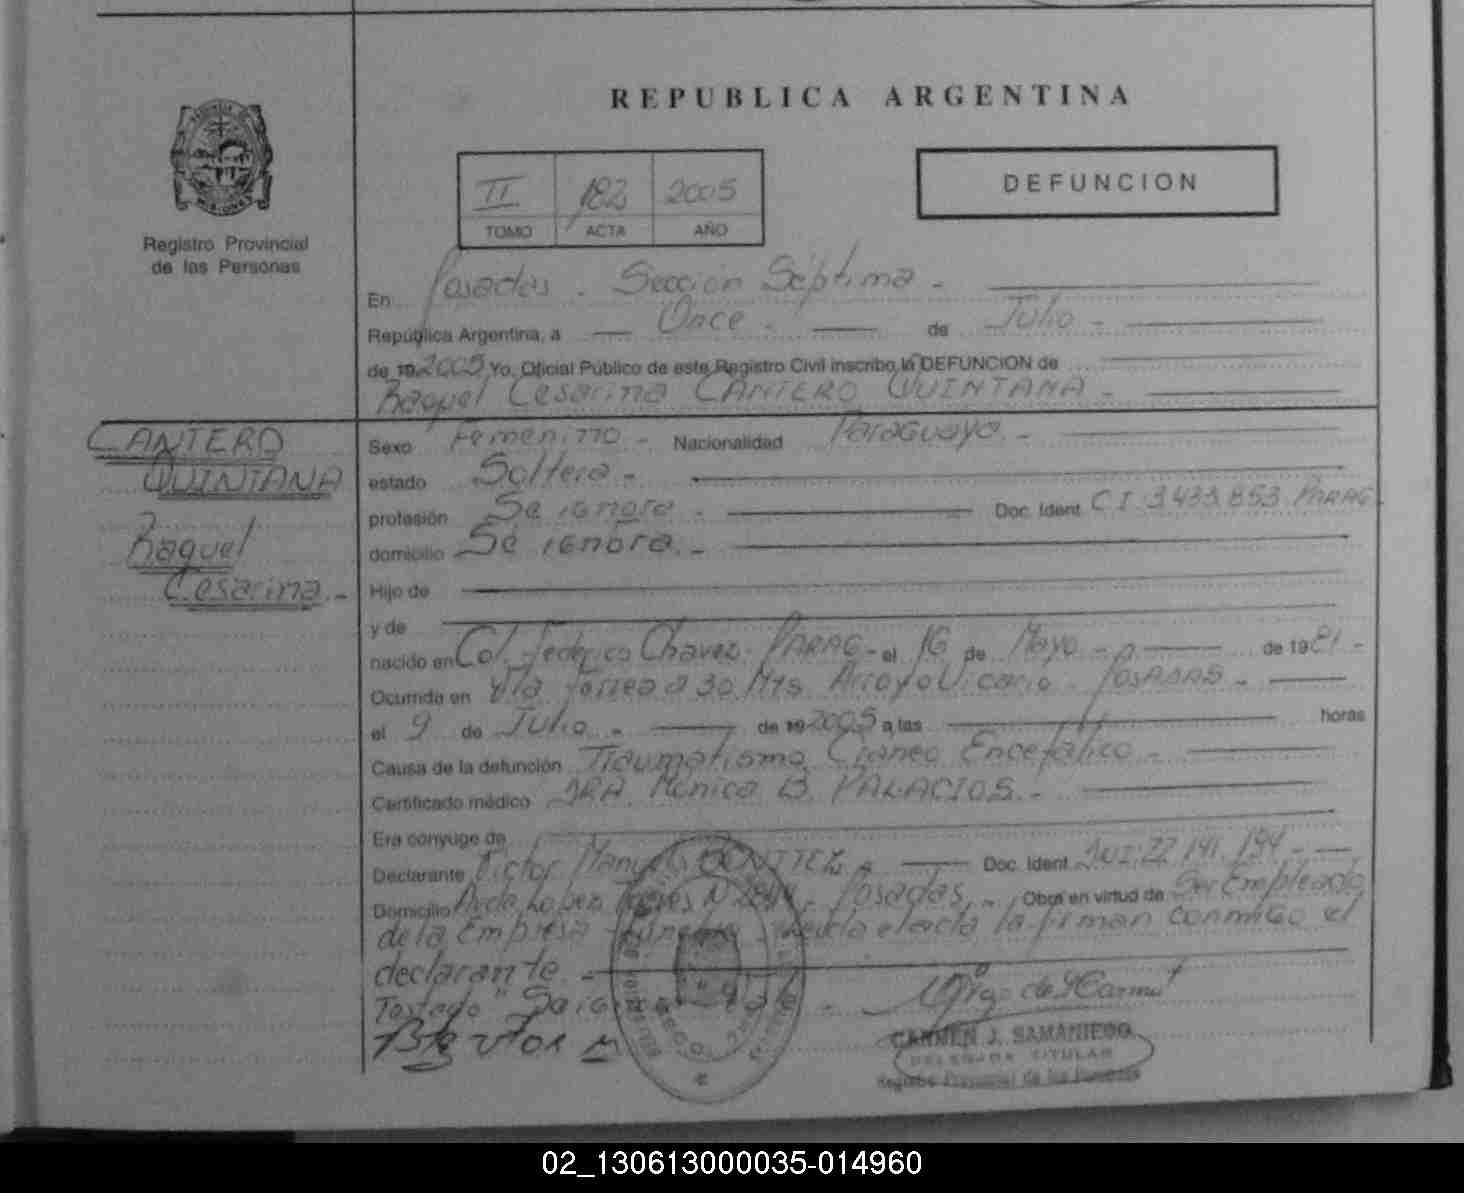 REPUBLICA ARGENTINA
II 182 2005
TOMO ACTA AÑO
DEFUNCION
Registro Provincial
de las Personas
En Posadas - Sección Séptima -
República Argentina, a Once - de Julio -
de 19 2005 Yo, Oficial Público de este Registro Civil inscribo la DEFUNCION de
Raquel Cesarina CANTERO QUINTANA -
CANTERO
QUINTANA
Raquel
Cesarina -
Sexo Femenino - Nacionalidad Paraguaya -
estado Soltera -
profesión Se ignora - Doc. Ident. C I 3.433.853 PARAG-
domicilio Se ignora -
Hijo de
y de
nacido en Col. Federico Chavez - PARAG - el 16 de Mayo - de 1981 -
Ocurrida en Vía Férrea a 30 Mts. Arroyo Vicario - POSADAS -
el 9 de Julio - de 19 2005 a las horas
Causa de la defunción Traumatismo Craneo Encefálico -
Certificado médico DRA. Monica B. PALACIOS -
Era conyuge de
Declarante Victor Manuel Doc. Ident. DNI: 22.141.194 -
Domicilio Avda Lopez Torres N - Posadas, - Obra en virtud de Ser Empleado
de la Empresa Fúnebre - Leída el acta la firman conmigo el
declarante -
Testado "Se ignora" Vale -
CARMEN J. SAMANIEGO
DELEGADA TITULAR
Registro Provincial de las Personas
02_130613000035-014960